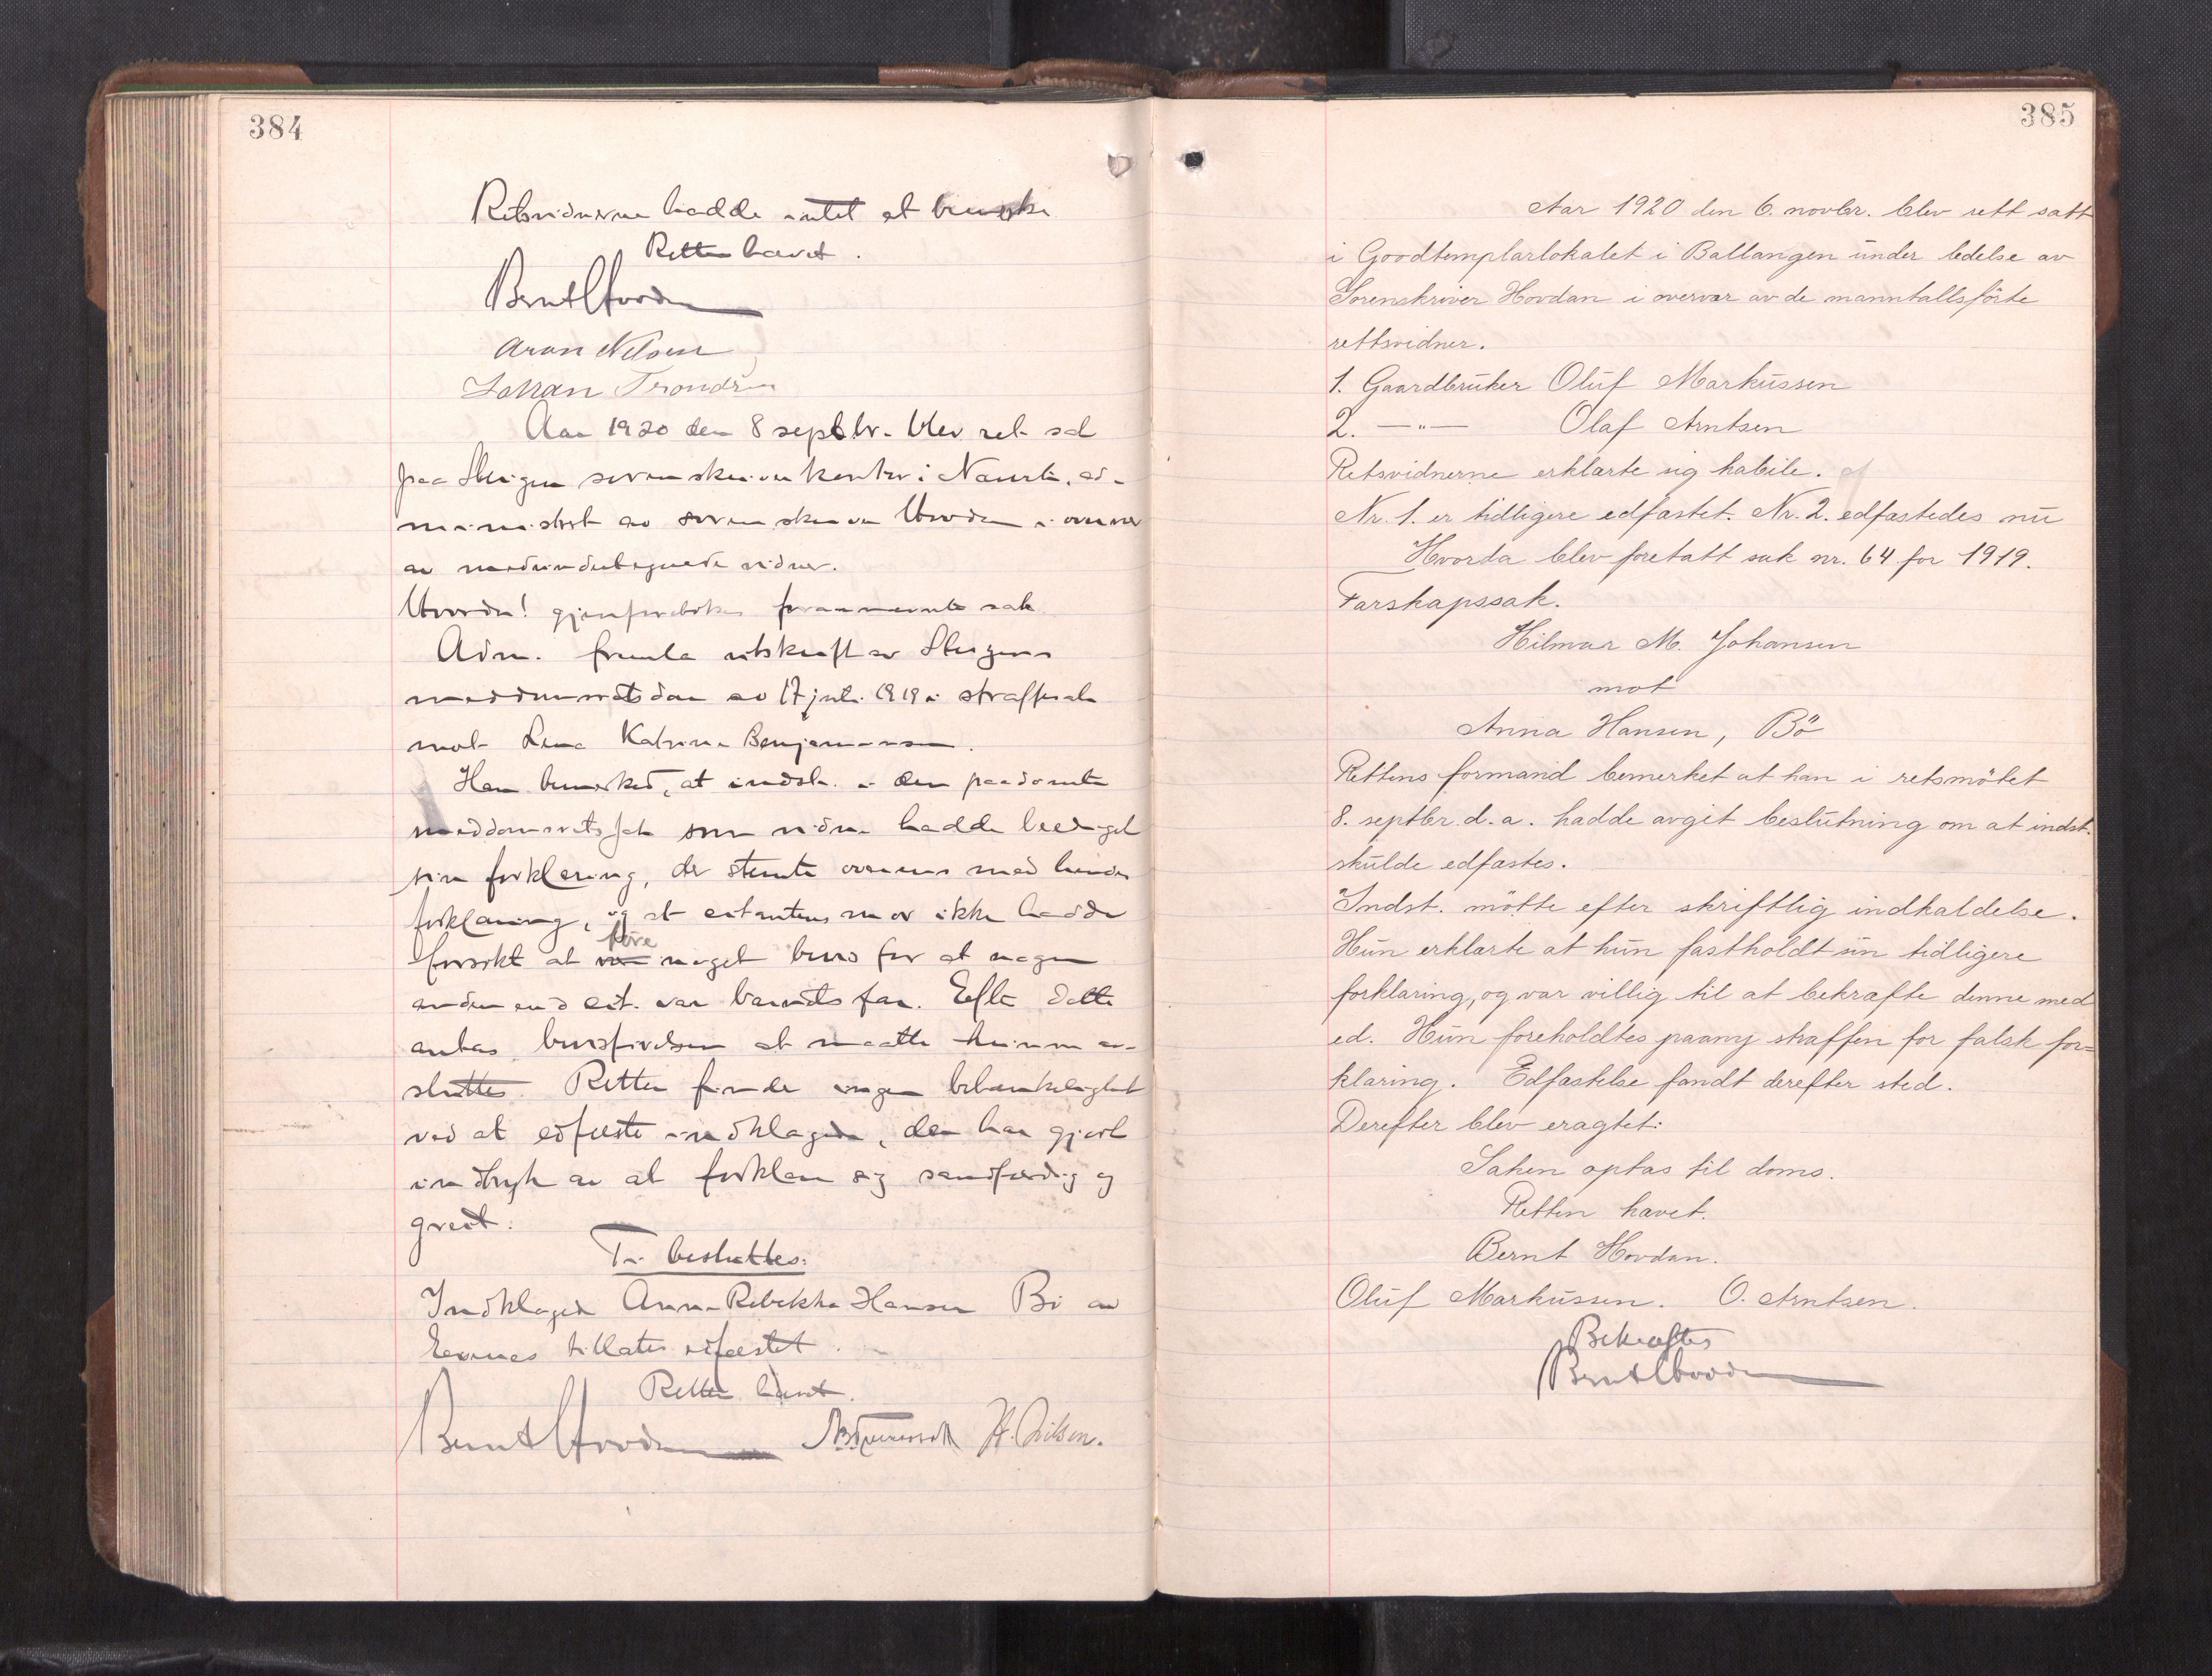 384
Retsvidnerne hadde intet at bemerke
Retten hævet.
Bernt Hovdan
Aron Nilsen
Johan Trondsen
Aar 1920 den 8 septbr. blev ret sat
paa Steigen sorenskriverkontor i Navvik, ad-
ministrert av sorenskriver Hovdan i overvær
av medundertegnede vidner.
Hvorda! gjenforetokes forannevnte sak
Adm. fremla utskrift av Steigens
meddomsretsdom av 17 juli 1919 i straffesak
mot Lina Katrine Benjaminsen.
Han bemerket, at indst. i den paadømte
meddomsretssak som vidne hadde beediget
sin forklaring, der stemte overens med hendes
forklaring, og at citantens mor ikke hadde
forsøkt at føre noget bevis for at nogen
anden end cit. var barnets far. Efter dette
antas bevisførelsen at maatte kunne av-
sluttes. Retten finder ingen betænkelighet
ved at edfæste indklagede, der har gjort
indtryk av at forklare sig sandfærdig og
greit.
Ti besluttes:
Indklagede Anna Rebekka Hansen Bø av
Evenes tillates edfæstet.
Retten hævet.
Bernt Hovdan H. Nilsen.
385
Aar 1920 den 6. novbr. blev rett satt
i Goodtemplarlokalet i Ballangen under ledelse av
Sorenskriver Hovdan i overvær av de manntallsförte
rettsvidner.
1. Gaardbruker Oluf Markussen
2. —"— Olaf Arntsen
Retsvidnerne erklærte sig habile.
Nr. 1. er tidligere edfæstet. Nr. 2. edfæstedes nu
Hvorda blev foretatt sak nr. 64 for 1919.
Farskapssak.
Hilmar M. Johansen
mot
Anna Hansen, Bö
Rettens formand bemerket at han i retsmötet
8. septbr. d.a. hadde avgit beslutning om at indst.
skulde edfæstes.
Indst. mötte efter skriftlig indkaldelse.
Hun erklærte at hun fastholdt sin tidligere
forklaring, og var villig til at bekræfte denne med
ed. Hun foreholdtes paany straffen for falsk for=
klaring. Edfæstelse fandt derefter sted.
Derefter blev eragtet:
Saken optas til doms.
Retten hævet.
Bernt Hovdan.
Oluf Markussen. O. Arntsen.
Bekræftes
Bernt Hovdan